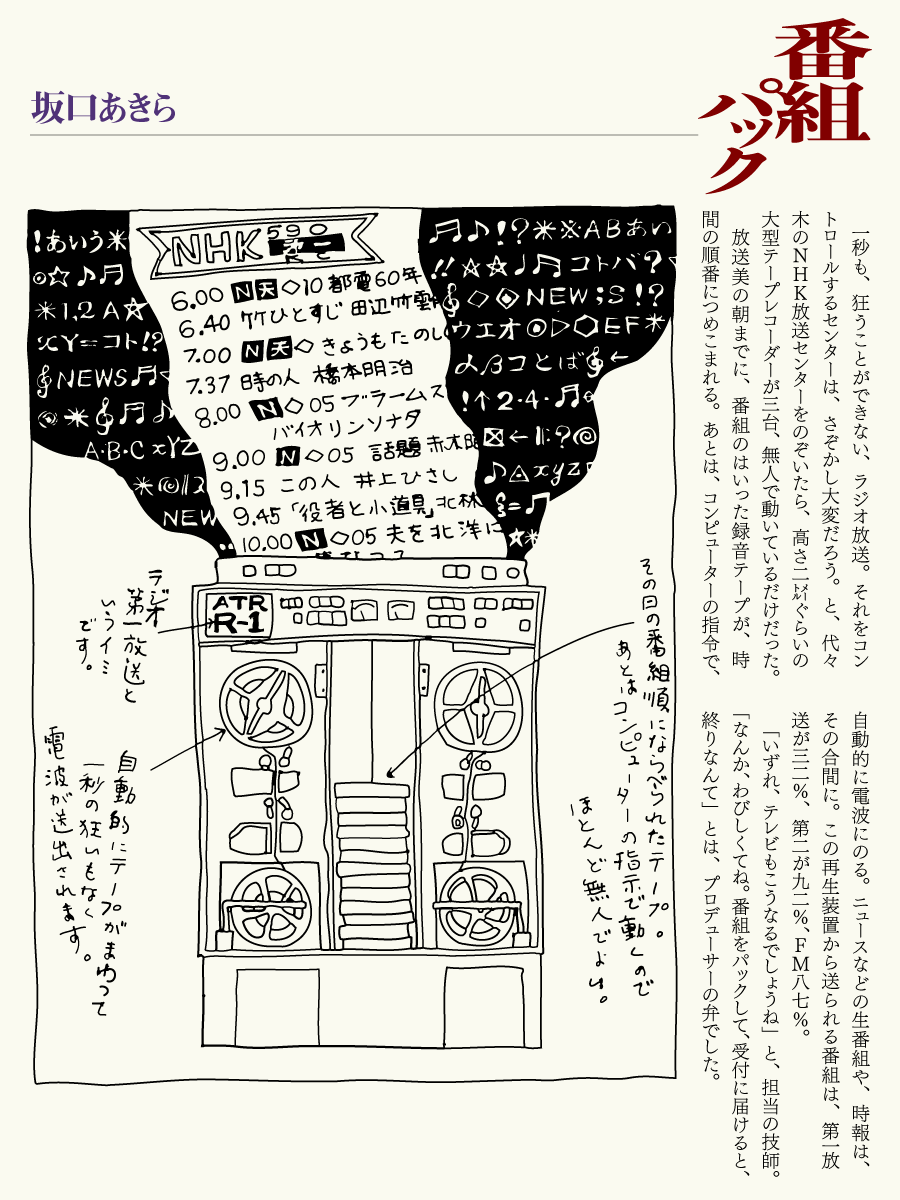 番組
パック
坂口あきら
一秒も、狂うことができない、ラジオ放送。それをコン
トロールするセンターは、さぞかし大変だろう。と、代々
木のNHK放送センターをのぞいたら、高さ二㍍ぐらいの
大型テープレコーダーが三台、無人で動いているだけだった。
放送美の朝までに、番組のはいった録音テープが、時
間の順番につめこまれる。あとは、コンピューターの指令で、
自動的に電波にのる。ニュースなどの生番組や、時報は、
その合間に。この再生装置から送られる番組は、第一放
送が三二%、第二が九二%、FM八七%。
「いずれ、テレビもこうなるでしょうね」と、担当の技師。
「なんか、わびしくてね。番組をパックして、受付に届けると、
終りなんて」とは、プロデューサーの弁でした。
!あいう*
◎☆♪♬
*1,2 A☆
xY=コト!?
NEWS♬
A・B・C xYZ
NEW
♬♪!?*※ABあい
!!☆☆♩♬コトバ?
◇NEW;S!?
ウエオ◎▷⬡EF*
コとば
!↑2・4・♬
?@
♪△xyz
=♬
NHK 590 第一
6.00 N天◇10 都電60年
6.40 竹ひとすじ 田辺竹雲
7.00 N天◇きょうもたのし
7.37 時の人 橋本明治
8.00 N◇05 ブラームス
バイオリンソナタ
9.00 N◇05 話題 赤木
9.15 この人 井上ひさし
9.45 「役者と小道具」北林
10.00 N◇05 夫を北洋に
ATR
R-1
ラジオ
第一放送と
いうイミ
です。
自動的にテープがまわって
一秒の狂いもなく。
電波が送出されます。
その日の番組順にならべられたテープ。
あとはコンピューターの指示で動くので
ほとんど無人でよい。